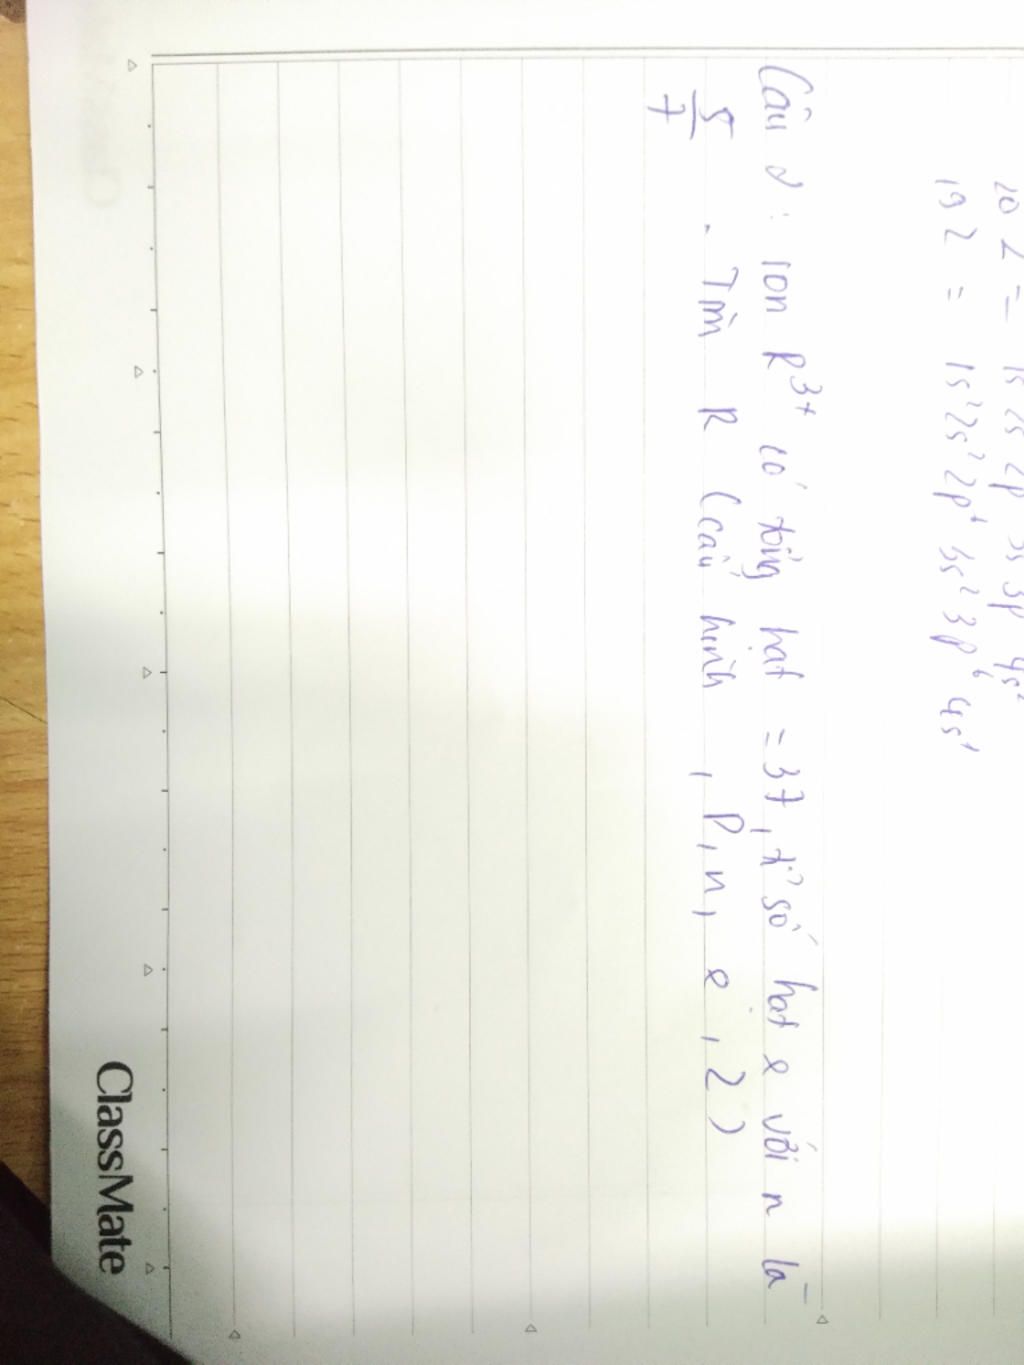 20 Z = 1s 2s 2p 3s 3p 4s²
19 Z = 1s² 2s² 2p⁶ 3s² 3p⁶ 4s¹
Câu 2 : ion R³⁺ có tổng hạt = 37, tỉ số hạt e với n là
5/7 . Tìm R (cấu hình , P, n, e , Z)
ClassMate